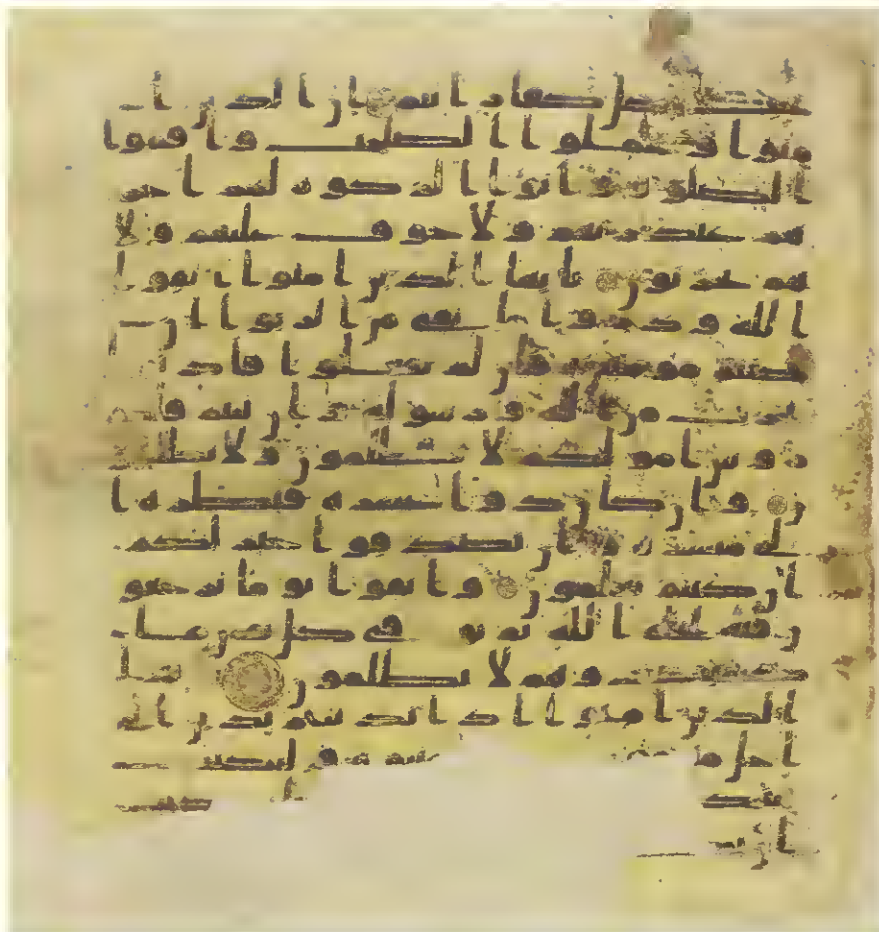 يحب كل كفار اثيم ان الذين ا
منوا وعملوا الصلحت واقاموا
الصلوة واتوا الزكوة لهم اجر
هم عند ربهم ولا خوف عليهم ولا
هم يحزنون يايها الذين امنوا اتقوا
الله وذروا ما بقي من الربوا ان
كنتم مومنين فان لم تفعلوا فاذنوا
بحرب من الله ورسوله وان تبتم فلكم
روس امولكم لا تظلمون ولا تظلمو
ن وان كان ذو عسرة فنظرة ا
لى ميسرة وان تصدقوا خير لكم
ان كنتم تعلمون واتقوا يوما ترجعو
ن فيه الى الله ثم توفى كل نفس ما
كسبت وهم لا يظلمون يايها
الذين امنوا اذا تداينتم بدين الى
اجل وليكتب
بينكم